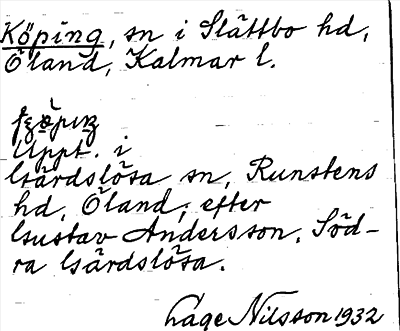 Köping, sn i Slättbo hd,
Öland, Kalmar l.
Uppt. i
Gärdslösa sn, Runstens
hd, Öland, efter
Gustav Andersson, Söd-
ra Gärdslösa.
Åage Nilsson 1932